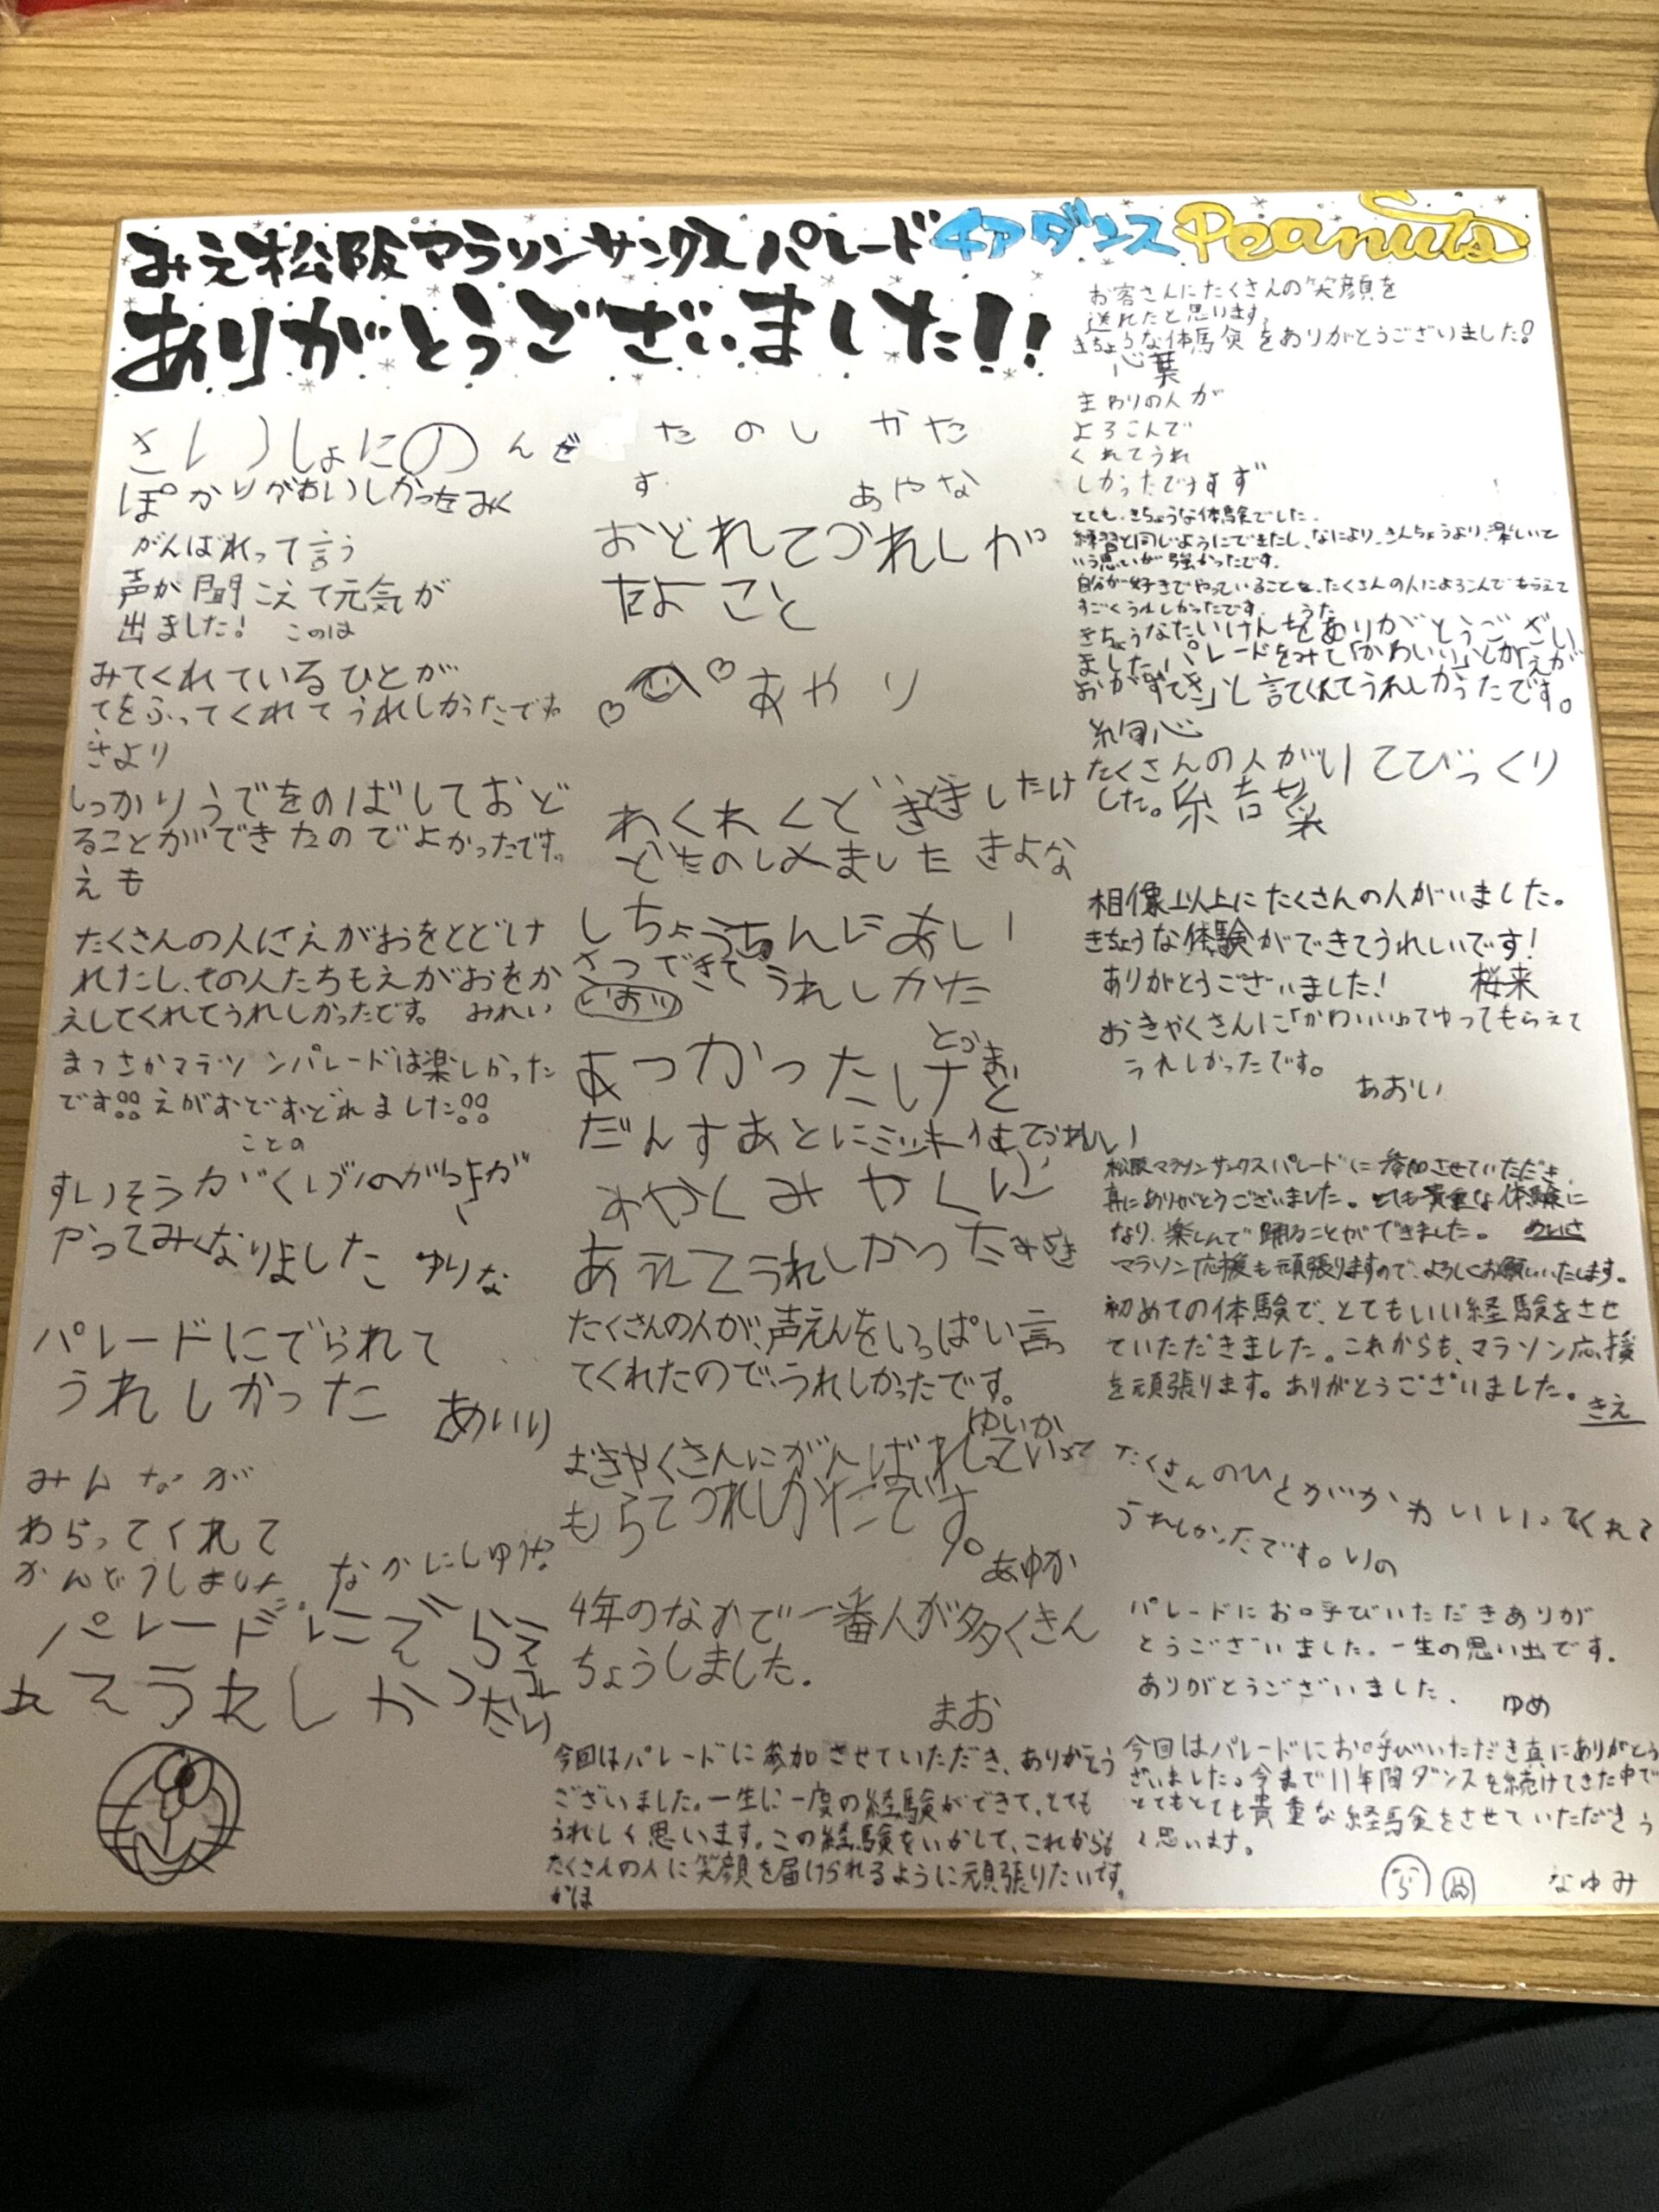 みえ松阪マラソンサンクスパレードチアダンスPeanuts
ありがとうございました!!
さいしょにのんだ
ぽかりがおいしかったみく
がんばれって言う
声が聞こえて元気が
出ました! このは
みてくれているひとが
てをふってくれてうれしかったです
さより
しっかりうでをのばしておど
ることができたのでよかったです。
えも
たくさんの人にえがおをとどけ
れたし、その人たちもえがおをか
えしてくれてうれしかったです。 みれい
まつさかマラソンパレードは楽しかった
です!! えがおでおどれました!!
ことの
すいそうがくぶ
やってみくなりました ゆりな
パレードにでられて
うれしかった あいり
みんなが
わらってくれて
かんどうしました。 なかにしゆうか
パレードにでらえ
れてうれしかった
たのしかた
す あやな
おどれてうれしか
たよ こと
あやり
わくわくどきどきしたけ
どたのしみました きよな
しちょうちんにあい
さつできてうれしかた
いおり
あつかったけど
だんすあとにミッキー
みやくみやくに
あえてうれしかった みさき
たくさんの人が、声えんをいっぱい言っ
てくれたので、うれしかったです。
ゆいか
おきゃくさんにがんばれっていって
もらてうれしかたです。
あゆか
4年のなかで一番人が多くきん
ちょうしました.
まお
今回はパレードに参加させていただき、ありがとう
ございました。一生に一度の経験ができて、とても
うれしく思います。この経験をいかして、これからも
たくさんの人に笑顔を届けられるように頑張りたいです。
かほ
お客さんにたくさんの笑顔を
送れたと思います。
きちょうな体験をありがとうございました!
心葉
まわりの人が
よろこんで
くれてうれ
しかったです すず
とても、きちょうな体験でした.
練習と同じようにできたし、なにより、きんちょうより、楽しいて
いう思いが強かったです。
自分が好きでやっていることを、たくさんの人によろこんでもらえて
すごくうれしかったです. うた
きちょうなたいけんをありがとうござい
ました。パレードをみて「かわいい」とか「えが
おがすてき」と言てくれてうれしかったです。
絢心
たくさんの人がいてびっくり
した。 結菜
相像以上にたくさんの人がいました。
きちょうな体験ができてうれしいです!
ありがとうございました! 桜来
おきゃくさんに「かわいい」ってゆってもらえて
うれしかったです。
あおい
松阪マラソンサンクスパレードに参加させていただき、
真にありがとうございました。とても貴重な体験に
なり、楽しんで踊ることができました。 めいさ
マラソン応援も頑張りますので、よろしくお願いいたします。
初めての体験で、とてもいい経験をさせ
ていただきました。これからも、マラソン応援
を頑張ります。ありがとうございました。
さえ
たくさんのひとがかわいいいってくれて
うれしかったです。りの
パレードにお呼びいただきありが
とうございました。一生の思い出です.
ありがとうございました. ゆめ
今回はパレードにお呼びいただき真にありがとう
ざいました。今まで11年間ダンスを続けてきた中で
とてもとても貴重な経験をさせていただきう
く思います。
なゆみ